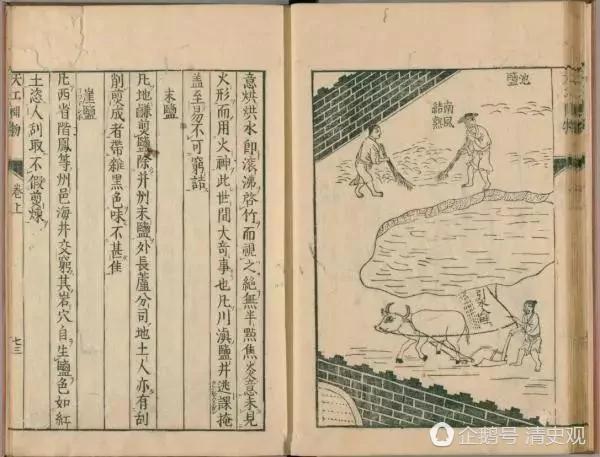 池鹽
南風
結熟
引水
意烘烘水即滾沸啓竹而視之絕無半點焦炎意未見
火形而用火神此世間大奇事也凡川滇鹽井逃課掩
盖至易不可窮詰
末鹽
凡地鹻煎鹽除并州末鹽外長蘆分司地土人亦有刮
削煎成者帶雜黑色味不甚佳
崖鹽
凡西省階鳳等州邑海井交窮其岩穴自生鹽色如紅
土恣人刮取不假煎煉
天工開物 卷上 七三
企鹅号 清史观